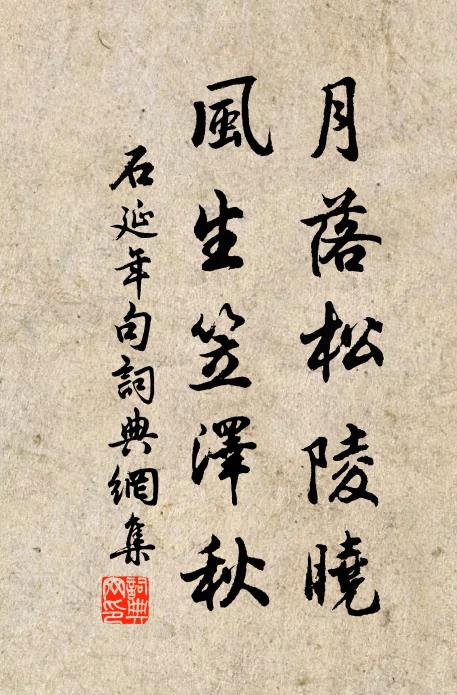 月落松陵曉
風生笠澤秋
石延年句詞典網集
詞典网印